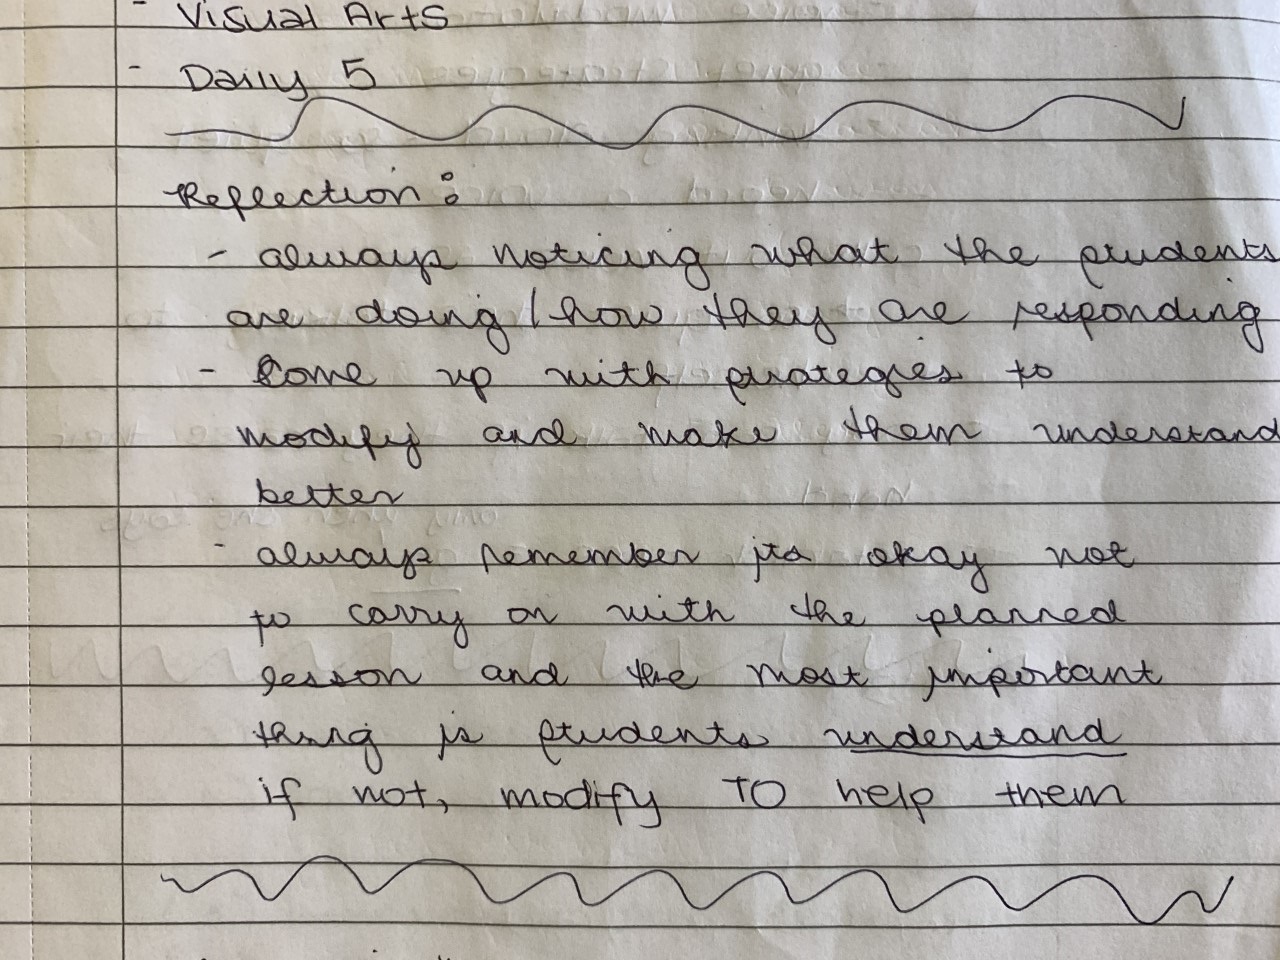 - Visual Arts
- Daily 5
Reflection:
- always noticing what the students
are doing / how they are responding
- Come up with strategies to
modify and make them understand
better
- always remember its okay not
to carry on with the planned
lesson and the most important
thing is students understand
if not, modify TO help them